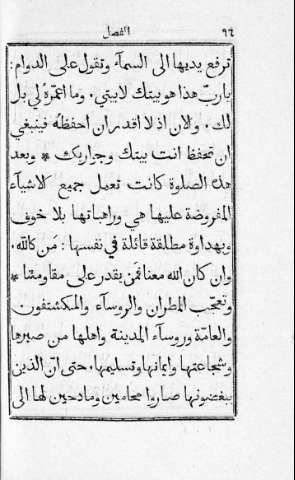 ٩٤ الفصل
ترفع يديها الى السمآء وتقول على الدوام:
يا ربّ هذا هو بيتك لا بيتي. وما اعمّره لي بل
لك. والان اذ لا اقدر ان احفظه فينبغي
ان تحفظ انت بيتك وجواريك * وبعد
هذه الصلوة كانت تعمل جميع الاشيآء
المفروضة عليها هي وراهباتها بلا خوف
وبهداوة مطلقة قائلة في نفسها: مَن كالله.
وان كان الله معنا فمَن يقدر على مقاومتنا *
وتعجّب المطران والروسآء والمكشتفون
والعامّة وروسآء المدينة واهلها من صبرها
وشجاعتها وايمانها وتسليمها. حتى انّ الذين
يبغضونها صاروا محامين ومادحين لها الى